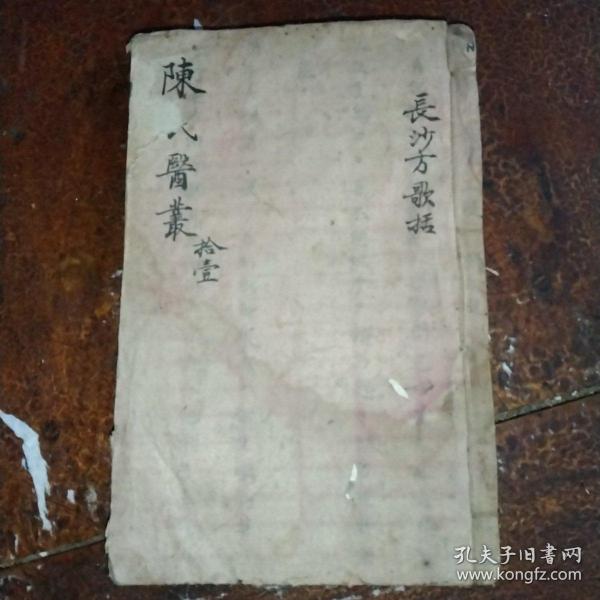 長沙方歌括
陳氏醫叢
拾壹
孔夫子旧书网
www.kongfz.com